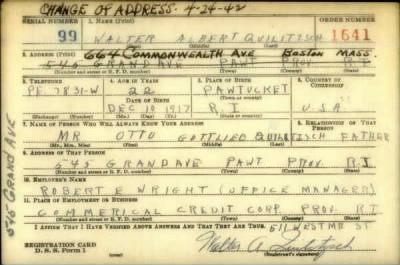 CHANGE OF ADDRESS - 4-24-42
SERIAL NUMBER 1. NAME (Print) ORDER NUMBER
99 WALTER ALBERT QUILITISCH 1641
664 COMMONWEALTH AVE BOSTON MASS.
2. ADDRESS (Print)
545 GRAND AVE PAWT PROV. R.I
(Number and street or R. F. D. number) (Town) (County) (State)
3. TELEPHONE 4. AGE IN YEARS 5. PLACE OF BIRTH 6. COUNTRY OF CITIZENSHIP
PE. 7831-W 22 PAWTUCKET
DATE OF BIRTH (Town or county)
DEC 19 1917 R.I USA
(Exchange) (Number) (Mo.) (Day) (Yr.) (State or country)
7. NAME OF PERSON WHO WILL ALWAYS KNOW YOUR ADDRESS 8. RELATIONSHIP OF THAT PERSON
MR OTTO GOTTLIEB QUILITISCH FATHER
(Mr., Mrs., Miss) (First) (Middle) (Last)
9. ADDRESS OF THAT PERSON
545 GRAND AVE PAWT PROV. R.I
(Number and street or R. F. D. number) (Town) (County) (State)
10. EMPLOYER'S NAME
ROBERT E WRIGHT (OFFICE MANAGER)
11. PLACE OF EMPLOYMENT OR BUSINESS
COMMERICAL CREDIT CORP. PROV. R.I
511 WESTMR ST
(Number and street or R. F. D. number) (Town) (County) (State)
I AFFIRM THAT I HAVE VERIFIED ABOVE ANSWERS AND THAT THEY ARE TRUE.
REGISTRATION CARD
D. S. S. Form 1
Walter A. Quilitzsch
(Registrant's signature)
545 GRAND AVE